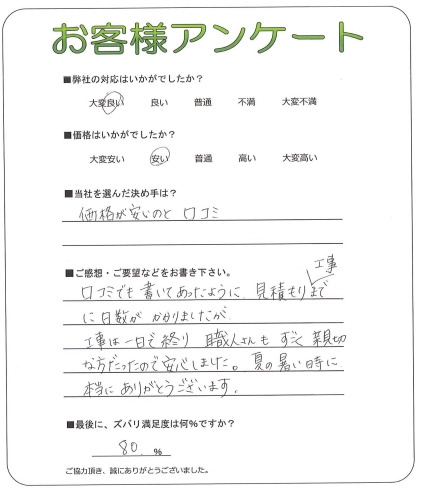 お客様アンケート
■弊社の対応はいかがでしたか？
大変良い 良い 普通 不満 大変不満
■価格はいかがでしたか？
大変安い 安い 普通 高い 大変高い
■当社を選んだ決め手は？
価格が安いのと 口コミ
■ご感想・ご要望などをお書き下さい。
工事
口コミでも書いてあったように、見積もりまで
に日数が かかりましたが、
工事は一日で終り 職人さんも すごく親切
な方だったので安心しました。夏の暑い時に
本当に ありがとうございます。
■最後に、ズバリ満足度は何％ですか？
80.％
ご協力頂き、誠にありがとうございました。